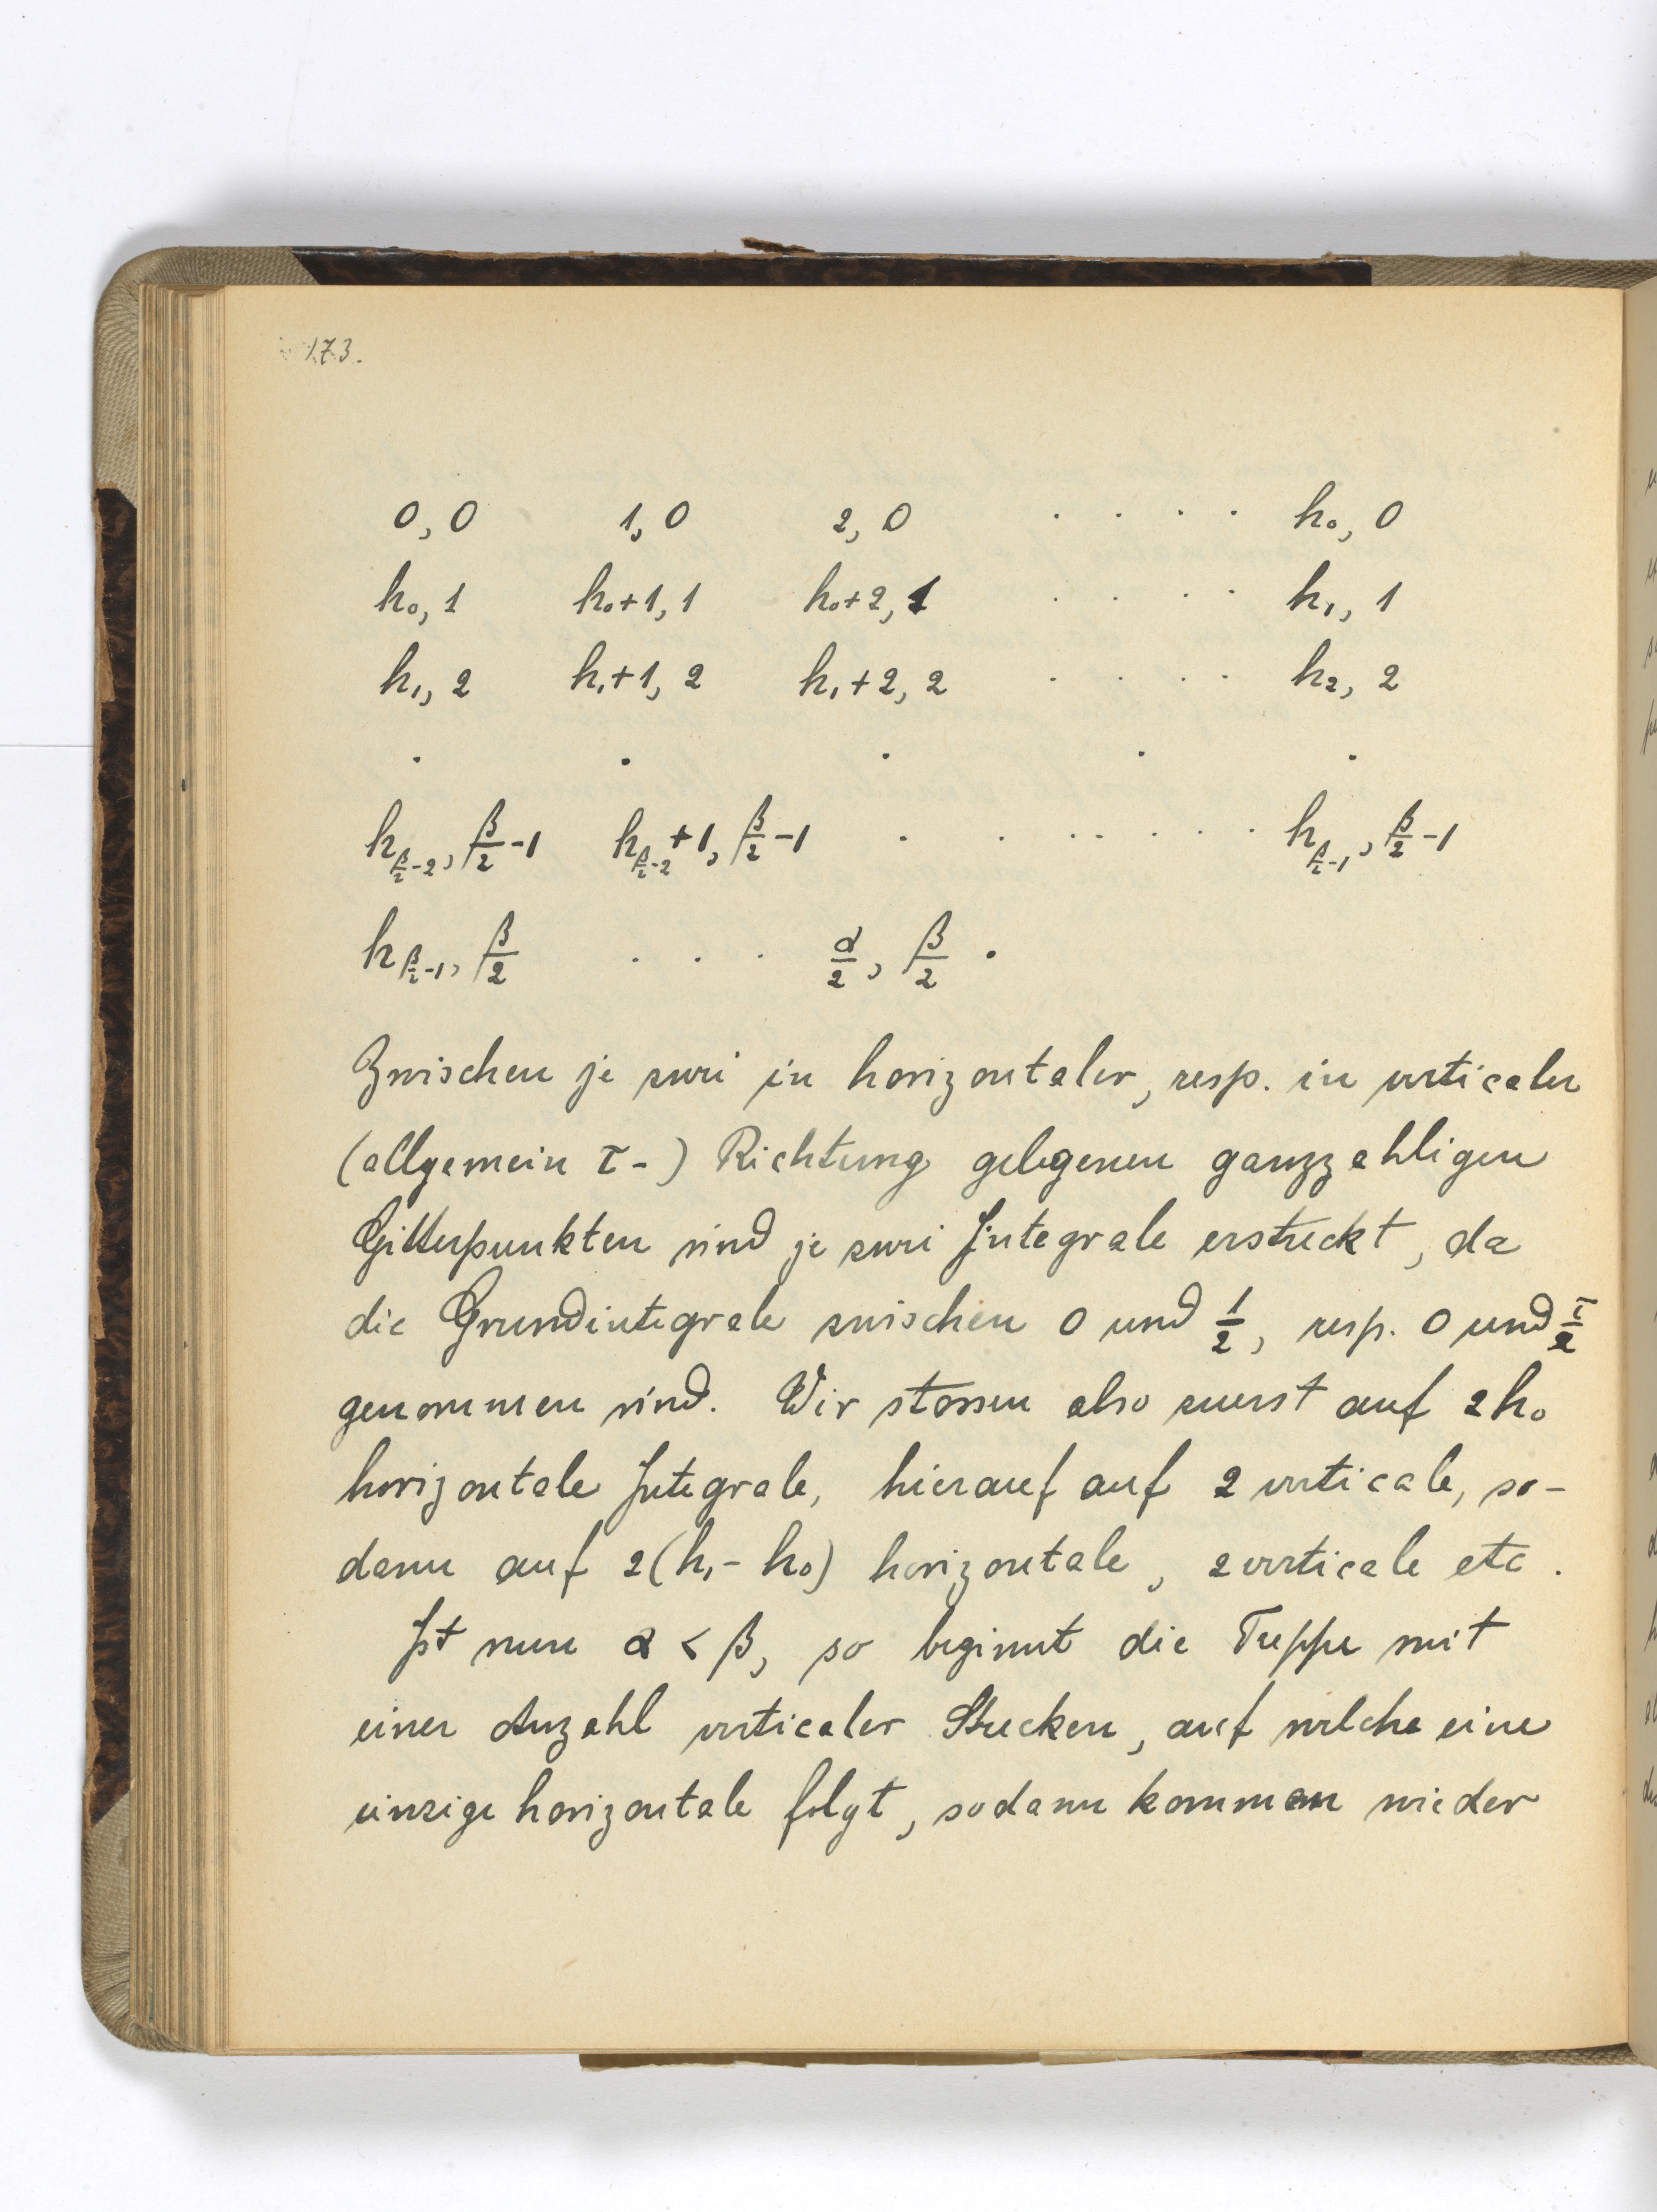 173.
0, 0 1, 0 2, 0 . . . . h₀, 0
h₀, 1 h₀+1, 1 h₀+2, 1 . . . . h₁, 1
h₁, 2 h₁+1, 2 h₁+2, 2 . . . . h₂, 2
. . . . .
h_{β/2-2}, β/2-1 h_{β/2-2}+1, β/2-1 . . . . . . . . h_{β/2-1}, β/2-1
h_{β/2-1}, β/2 . . . α/2, β/2 .
Zwischen je zwei in horizontaler, resp. in verticaler
(allgemein τ-) Richtung gelegenen ganzzahligen
Gitterpunkten sind je zwei Integrale erstreckt, da
die Grundintegrale zwischen 0 und 1/2, resp. 0 und τ/2
genommen sind. Wir stossen also zuerst auf 2h₀
horizontale Integrale, hierauf auf 2 verticale, so-
dann auf 2(h₁-h₀) horizontale, 2 verticale etc.
Ist nun α < β, so beginnt die Treppe mit
einer Anzahl verticaler Strecken, auf welche eine
einzige horizontale folgt, sodann kommen wieder